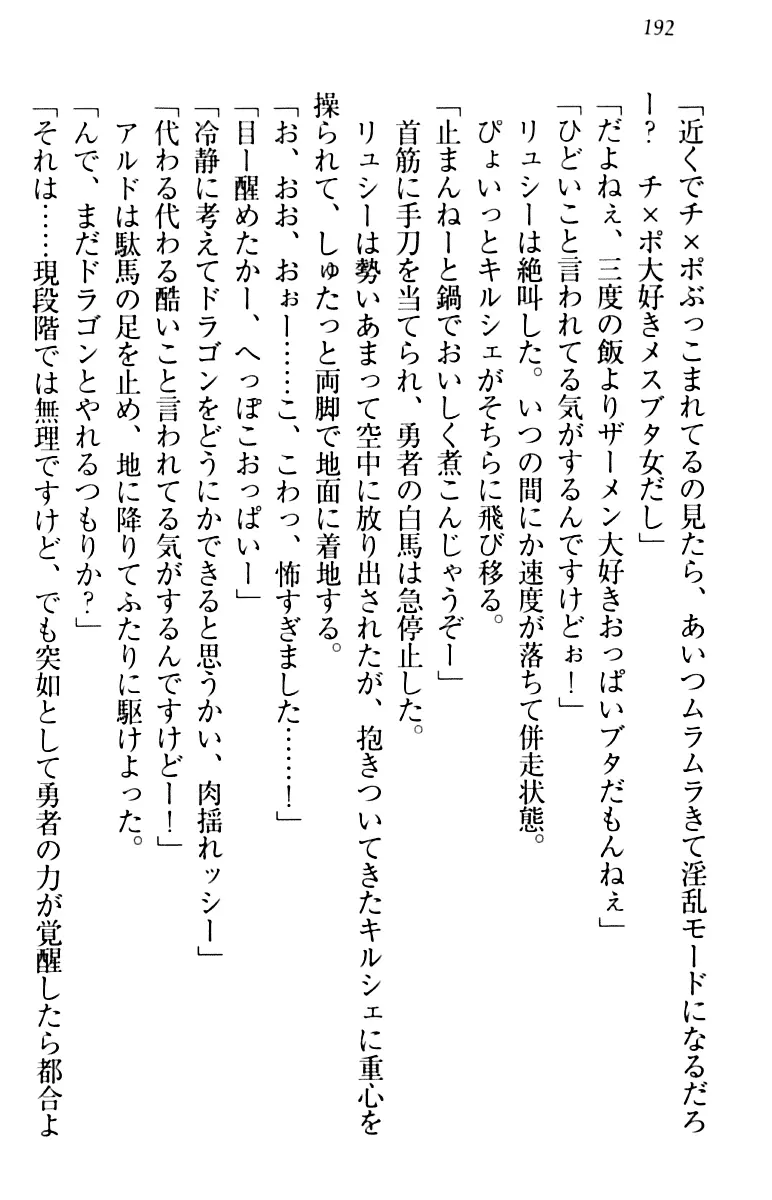 192
「近くでチ×ポぶっこまれてるの見たら、あいつムラムラきて淫乱モードになるだろ
ー？　チ×ポ大好きメスブタ女だし」
「だよねぇ、三度の飯よりザーメン大好きおっぱいブタだもんねぇ」
「ひどいこと言われてる気がするんですけどぉ！」
　リュシーは絶叫した。いつの間にか速度が落ちて併走状態。
　ぴょいっとキルシェがそちらに飛び移る。
「止まんねーと鍋でおいしく煮こんじゃうぞー」
　首筋に手刀を当てられ、勇者の白馬は急停止した。
　リュシーは勢いあまって空中に放り出されたが、抱きついてきたキルシェに重心を
操られて、しゅたっと両脚で地面に着地する。
「お、おお、おぉー……こ、こわっ、怖すぎました……！」
「目ー醒めたかー、へっぽこおっぱいー」
「冷静に考えてドラゴンをどうにかできると思うかい、肉揺れッシー」
「代わる代わる酷いこと言われてる気がするんですけどー！」
　アルドは駄馬の足を止め、地に降りてふたりに駆けよった。
「んで、まだドラゴンとやれるつもりか？」
「それは……現段階では無理ですけど、でも突如として勇者の力が覚醒したら都合よ